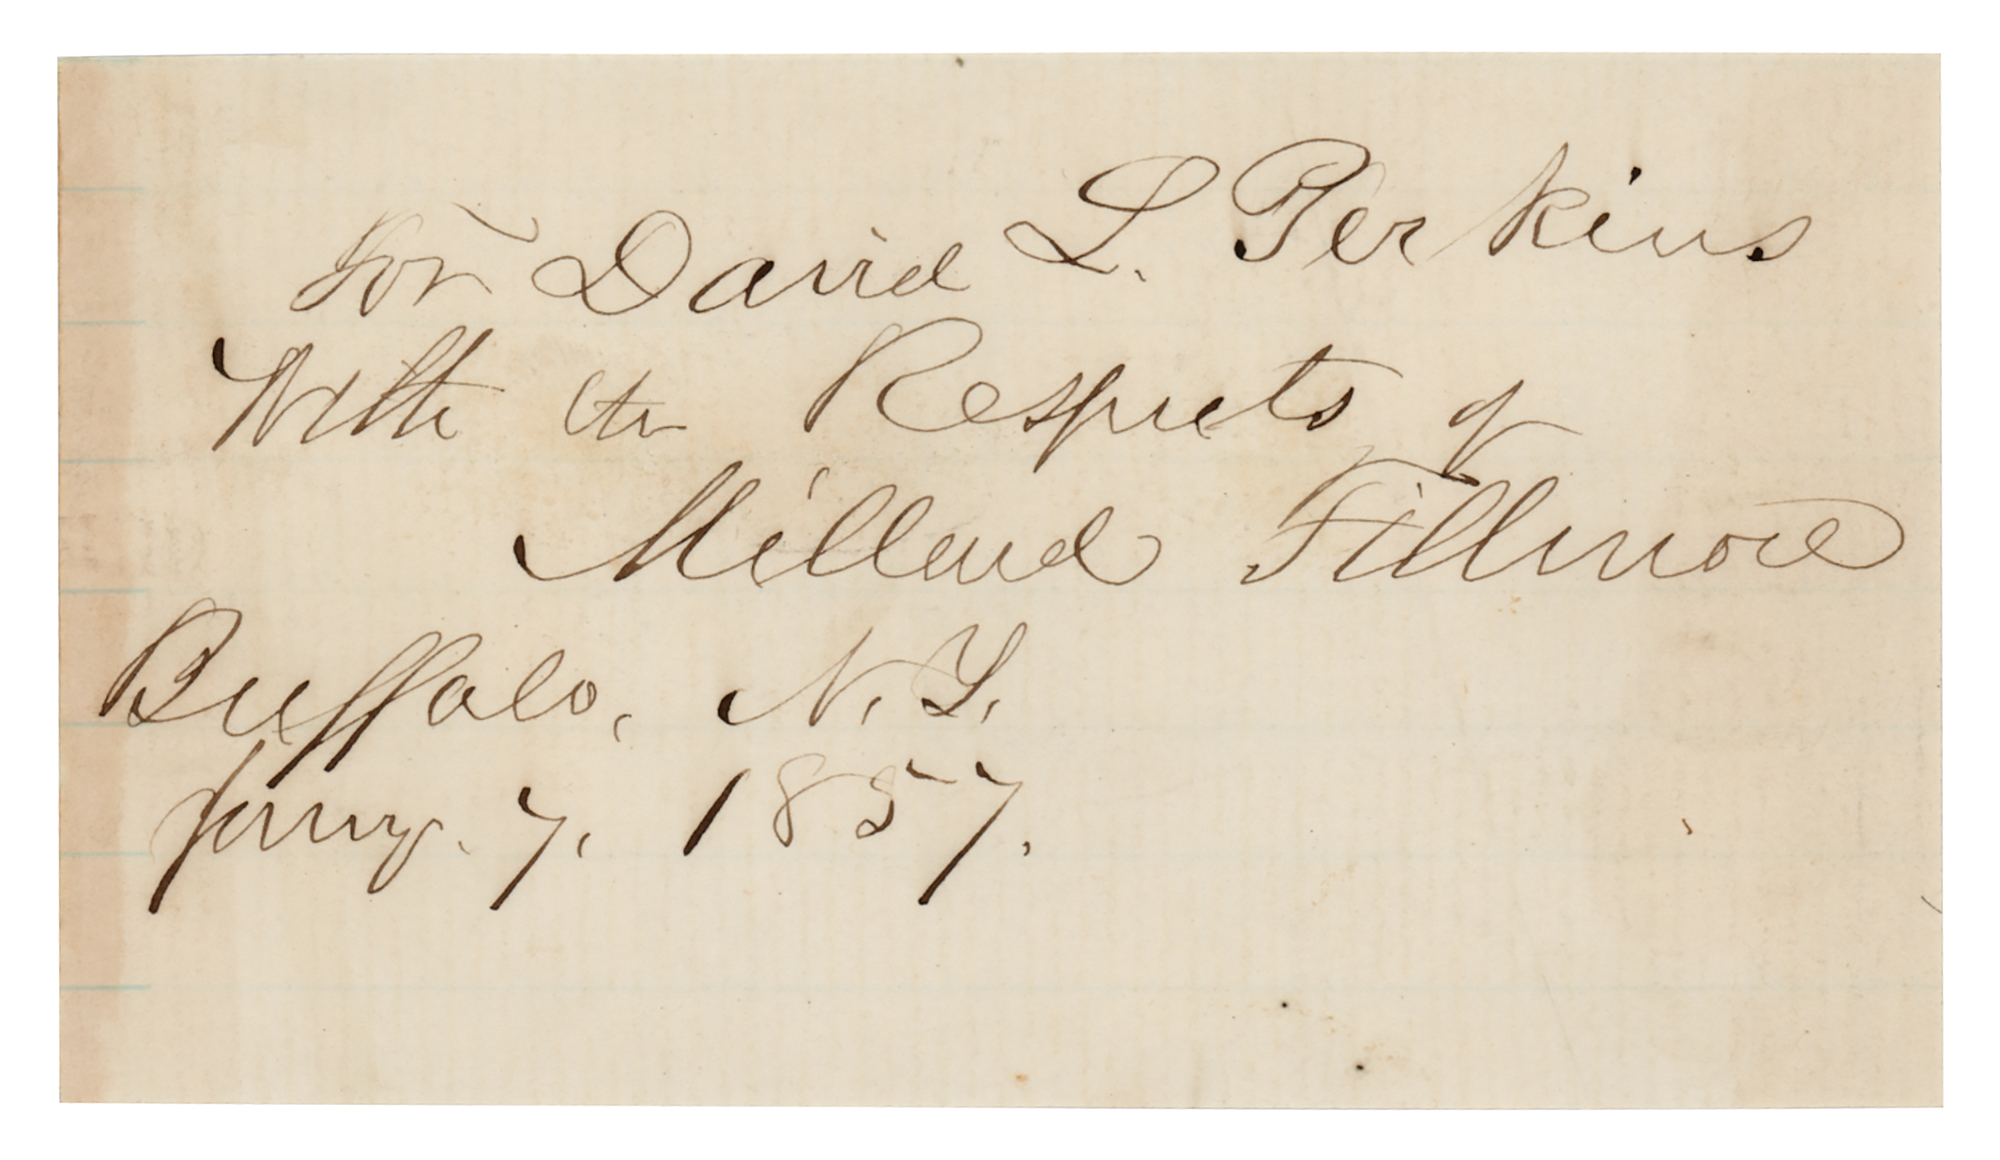 For David L. Perkins
With the Respects of
Millard Fillmore
Buffalo, N.Y.
Jany. 7, 1857.